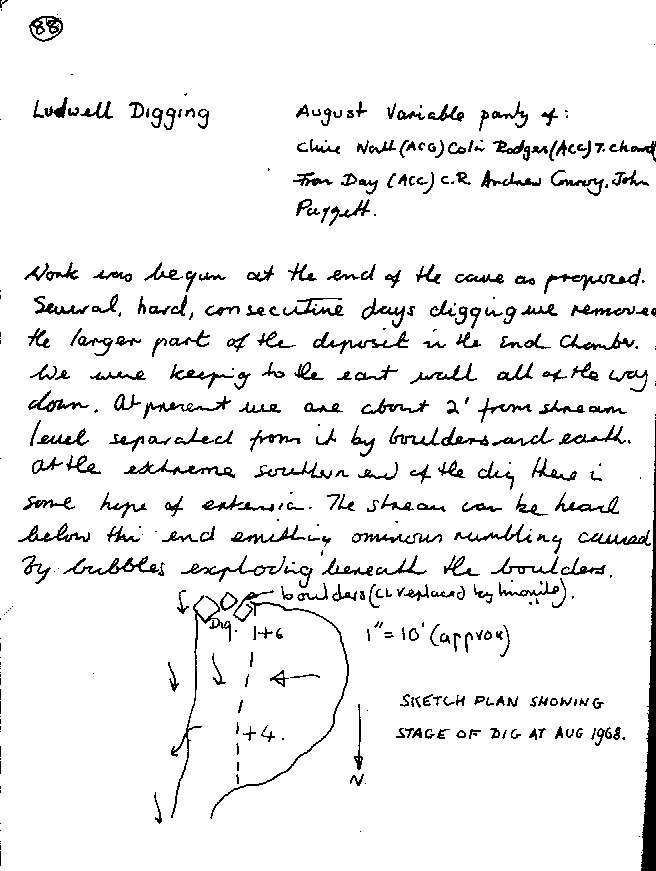 88
Ludwell Digging
August Variable party of:
Clive North (ACG) Colin Rodgers (ACC) T. Chand
Fran Day (ACC) C.R. Andrew Conroy, John
Paggett.
Work was begun at the end of the cave as proposed.
Several, hard, consecutive days digging we removed
the larger part of the deposit in the End Chamber.
We were keeping to the east wall all of the way
down. At present we are about 2' from stream
level separated from it by boulders and earth.
At the extreme southern end of the dig there is
some hope of extension. The stream can be heard
below this end emitting ominous rumbling caused
by bubbles exploding beneath the boulders.
boulders (CL replaced by limonite).
Dig. 1+6
1" = 10' (approx)
SKETCH PLAN SHOWING
+4.
STAGE OF DIG AT AUG 1968.
N